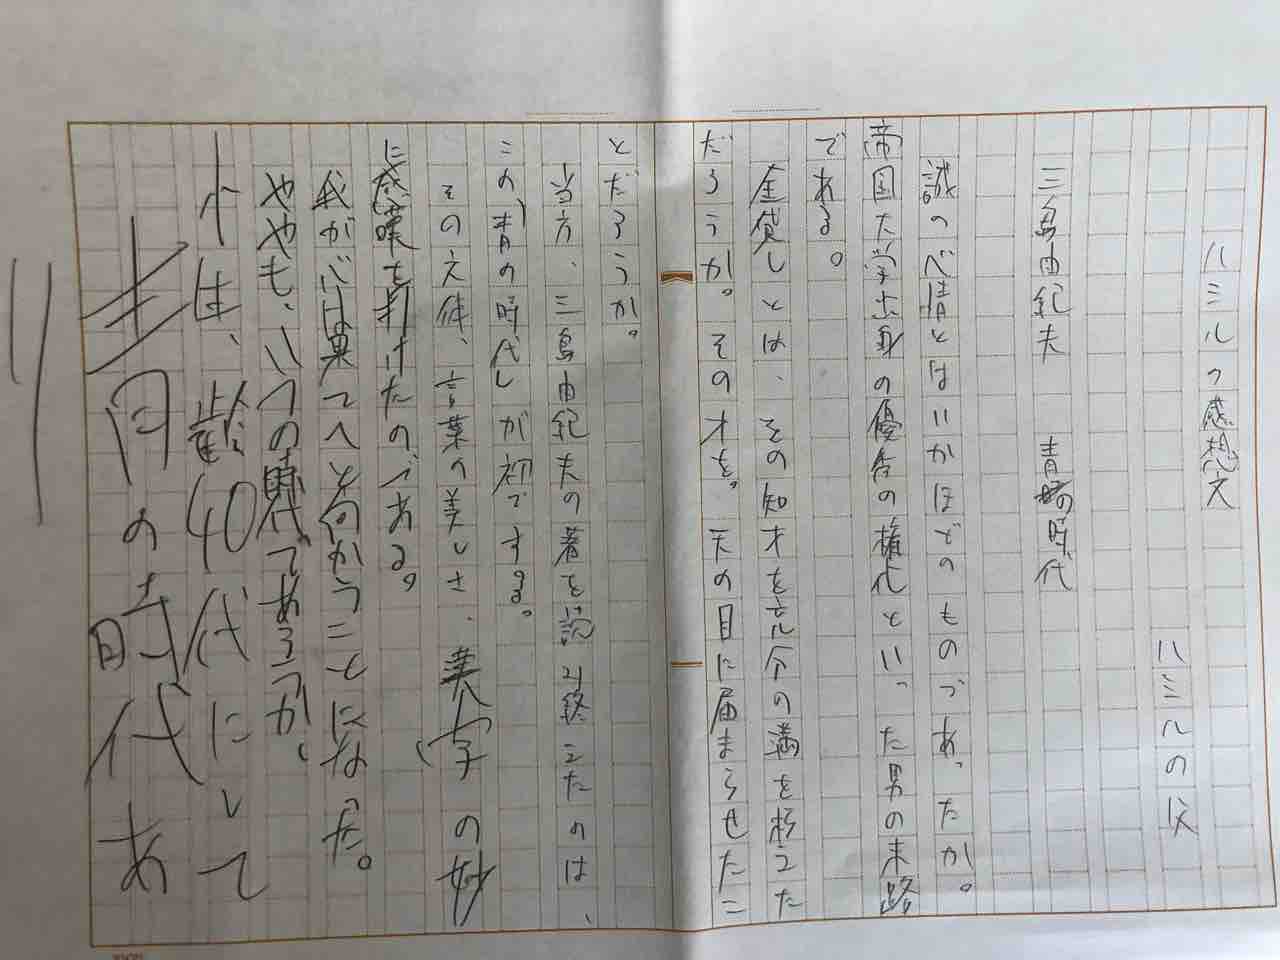 ハミルの感想文
ハミルの父
三島由紀夫　青の時代
誠の心情とはいかほどのものであったか。
帝国大学出身の優秀の権化といった男の末路
である。
金貸しとは、その知才を充分の満を持った
だろうか。その才を。天の目に届まらせたこ
とだろうか。
当方、三島由紀夫の著を読み終えたのは、
この「青の時代」が初でする。
その文体、言葉の美しさ、美文字の妙
に感嘆を挙げたのである。
我が心は果てへと向かうことになった。
ややも、いつの時代であろうか。
小は、齢40代にして
青の時代あ
り